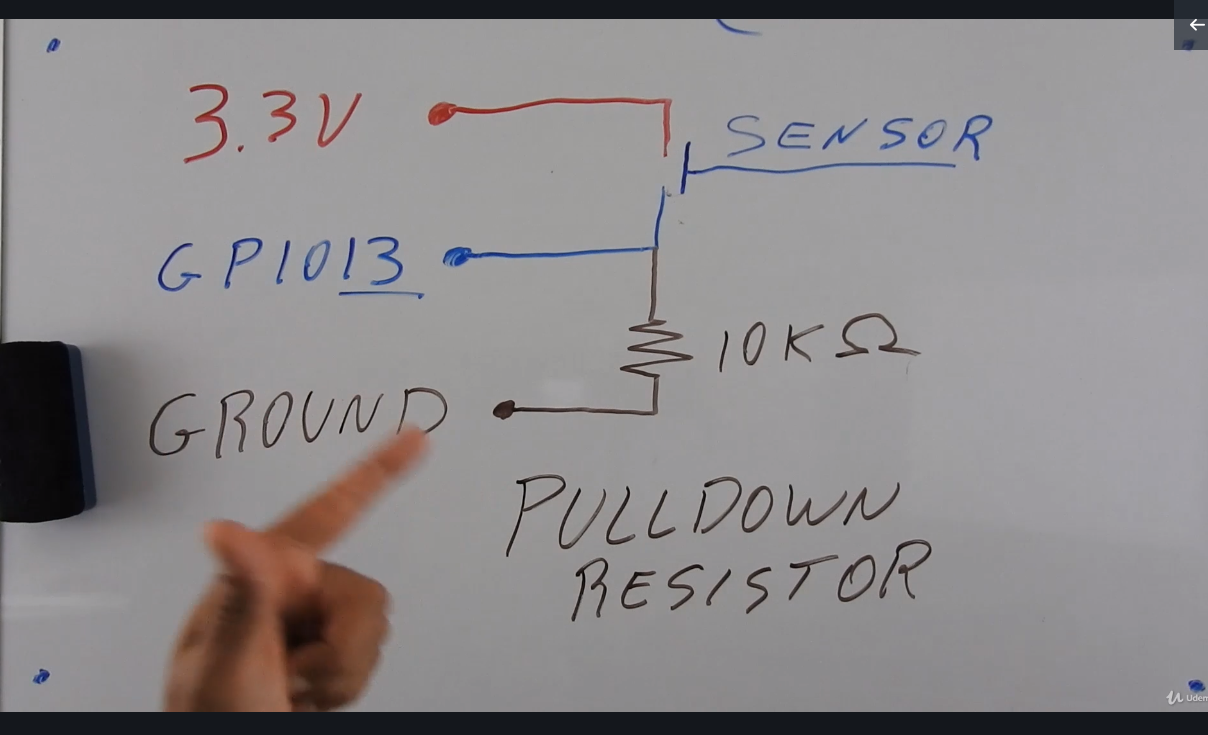 3.3V
SENSOR
GPIO13
10KΩ
GROUND
PULLDOWN
RESISTOR